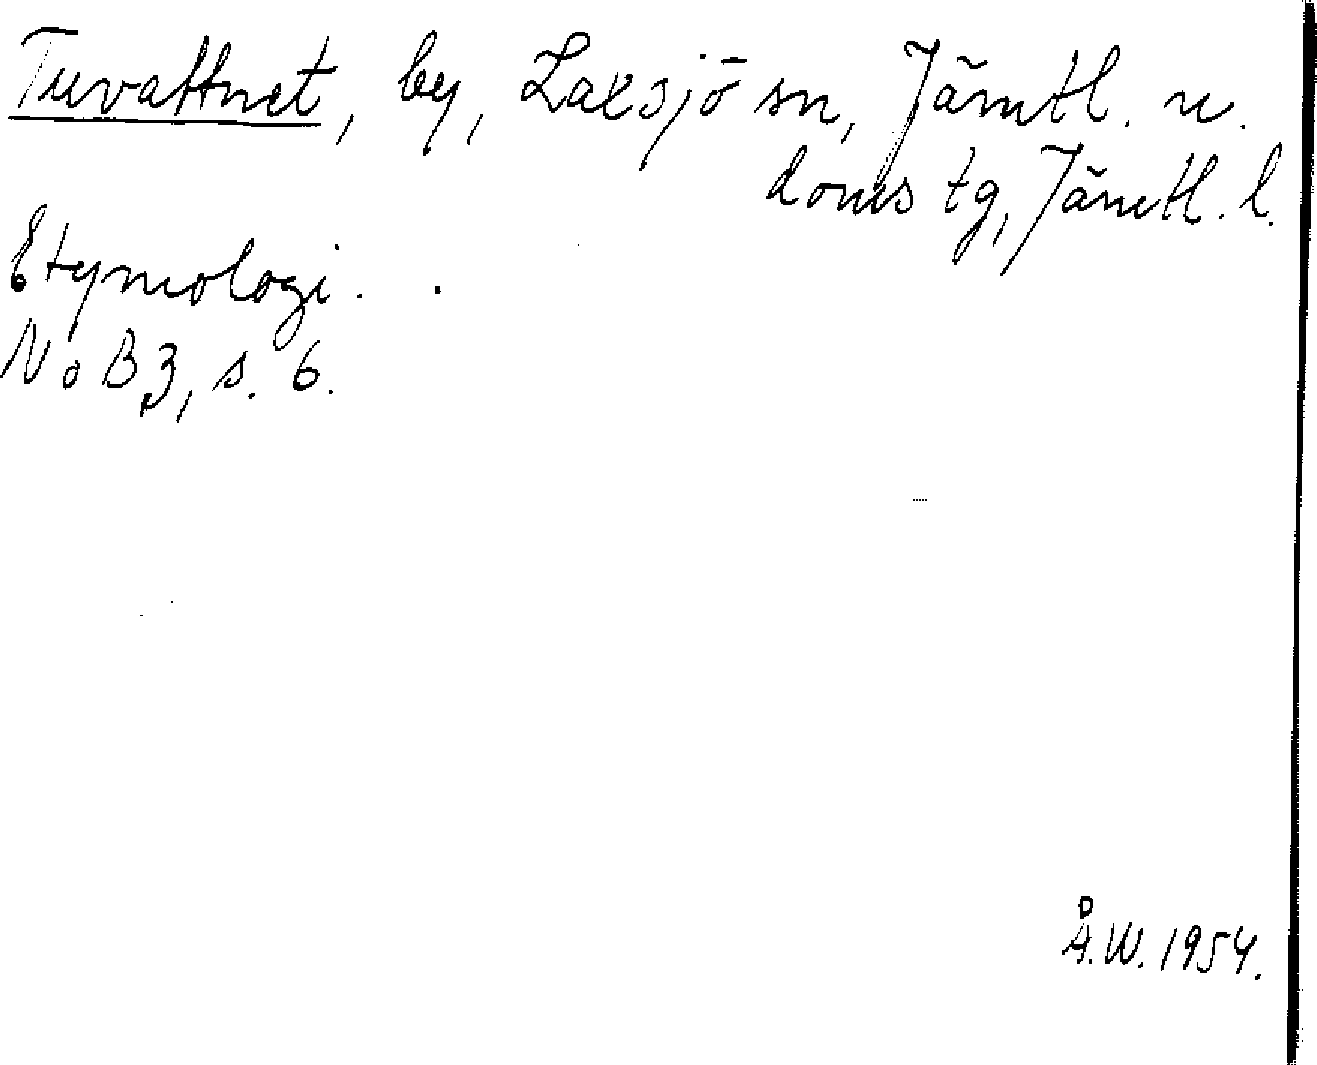 Tuvattnet, by, Laxsjö sn, Jämtl. n.
doms tg, Jämtl. l.
Etymologi.
NoB 3, s. 6.
Å.W. 1954.